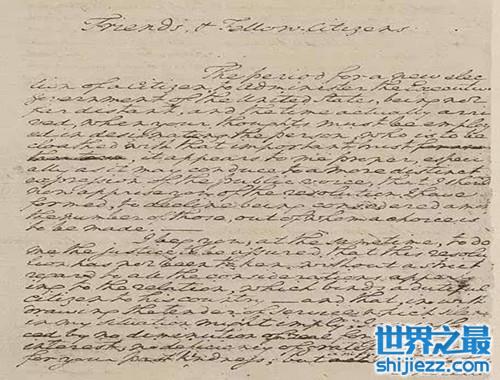 Friends, & Fellow-Citizens
The period for a new elec-
tion of a Citizen, to administer the Executive
government of the United States, being not
very distant, and the time actually arri-
ved, when your thoughts must be employ-
ed in designating the person, who is to be
cloathed with that important trust
, it appears to me proper, especi-
ally as it may conduce to a more distinct
expression of the public voice, that I should
now apprise you of the resolution I have
formed, to decline being considered among
the number of those, out of whom a choice is
to be made.
I beg you, at the same time, to do
me the justice to be assured, that this resolu-
tion has not been taken, without a strict
regard to all the considerations appertain-
ing to the relation, which binds a dutiful
citizen to his country — and that, in with-
drawing the tender of service which silence
in my situation might imply, I am influen-
ced by no diminution of zeal for your future
interest, no deficiency of grateful respect
for your past kindness; but
世界之最
shijiezz.com